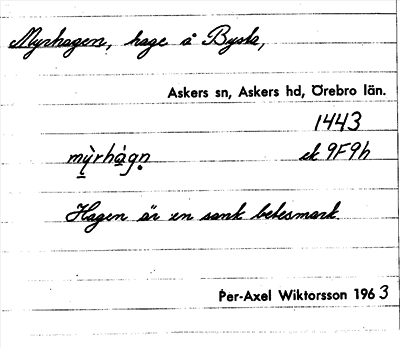 Myrhagen, hage å Bysta,
Askers sn, Askers hd, Örebro län.
1443
mỳrhàgn̥ ek 9F9h
Hagen är en sank betesmark.
Per-Axel Wiktorsson 1963